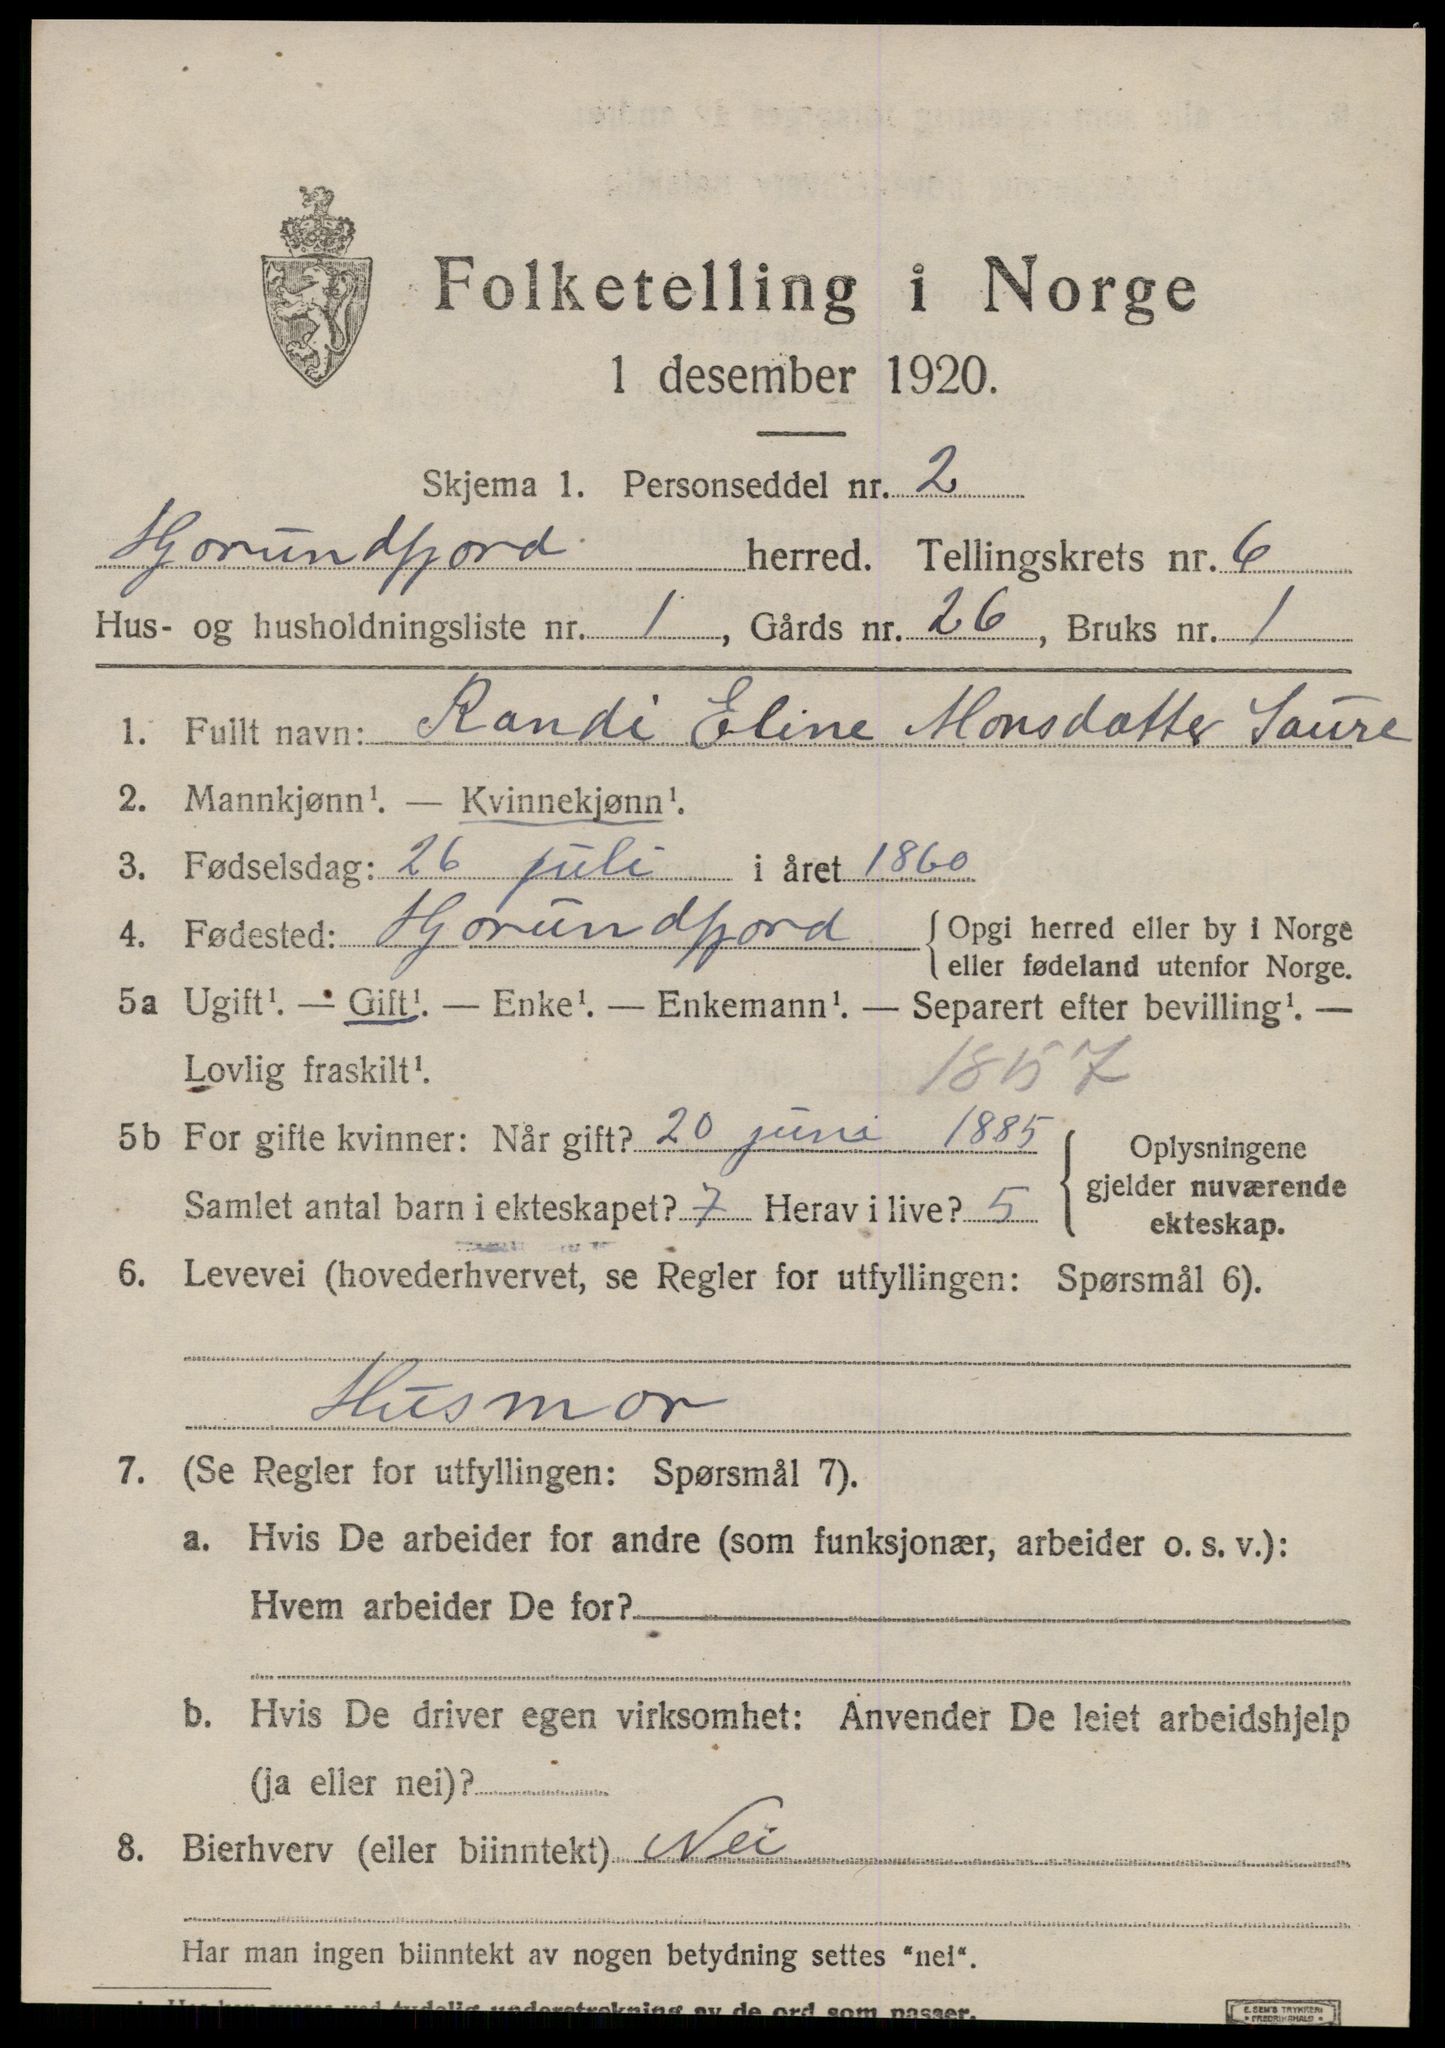 Folketelling i Norge
1 desember 1920.
Skjema 1. Personseddel nr. 2
Hjorundfjord herred. Tellingskrets nr. 6
Hus- og husholdningsliste nr. 1, Gårds nr. 26, Bruks nr. 1
1. Fullt navn: Randi Eline Monsdatter Saure
2. Mannkjønn¹. — Kvinnekjønn¹.
3. Fødselsdag: 26 juli i året 1860
4. Fødested: Hjorundfjord { Opgi herred eller by i Norge
eller fødeland utenfor Norge.
5a Ugift¹. — Gift¹. — Enke¹. — Enkemann¹. — Separert efter bevilling¹. —
Lovlig fraskilt¹. 1857
5b For gifte kvinner: Når gift? 20 juni 1885 { Oplysningene
gjelder nuværende
Samlet antal barn i ekteskapet? 7 Herav i live? 5
ekteskap.
6. Levevei (hovederhvervet, se Regler for utfyllingen: Spørsmål 6).
Husmor
7. (Se Regler for utfyllingen: Spørsmål 7).
a. Hvis De arbeider for andre (som funksjonær, arbeider o. s. v.):
Hvem arbeider De for?
b. Hvis De driver egen virksomhet: Anvender De leiet arbeidshjelp
(ja eller nei)?
8. Bierhverv (eller biinntekt) Nei
Har man ingen biinntekt av nogen betydning settes "nei".
tydelig understrekning av de ord som passer.
E. SEM'S TRYKKERI
FREDRIKSHALD